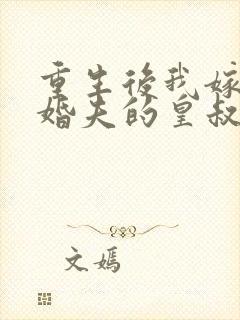 重生後我嫁
婚夫的皇叔
文嫣